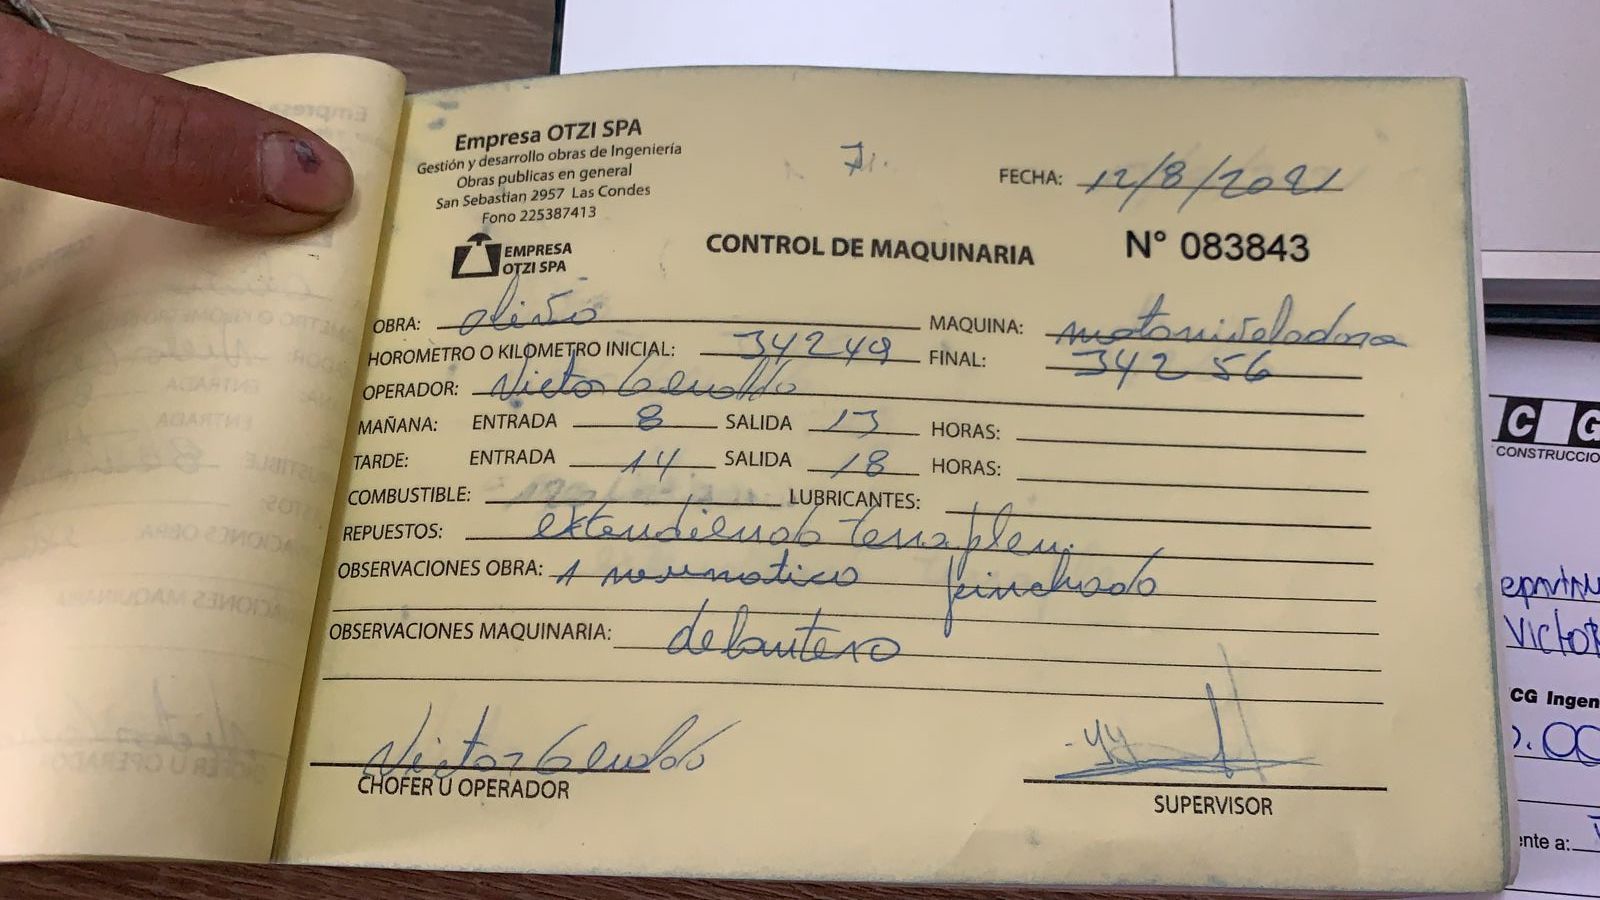 Empresa OTZI SPA
Gestión y desarrollo obras de Ingeniería
Obras publicas en general
San Sebastian 2957 Las Condes
Fono 225387413
EMPRESA
OTZI SPA
FECHA: 12/8/2021
CONTROL DE MAQUINARIA
N° 083843
OBRA: MAQUINA: motoniveladora
HOROMETRO O KILOMETRO INICIAL: 34249 FINAL: 34256
OPERADOR: Victor
MAÑANA: ENTRADA 8 SALIDA 13 HORAS:
TARDE: ENTRADA 14 SALIDA 18 HORAS:
COMBUSTIBLE: LUBRICANTES:
REPUESTOS: extendiendo terraplen.
OBSERVACIONES OBRA: 1 neumatico pinchado
OBSERVACIONES MAQUINARIA: delantero
Victor
CHOFER U OPERADOR
SUPERVISOR
CG
CONSTRUCCIO
VICTOR
CG Ingen
ente a: